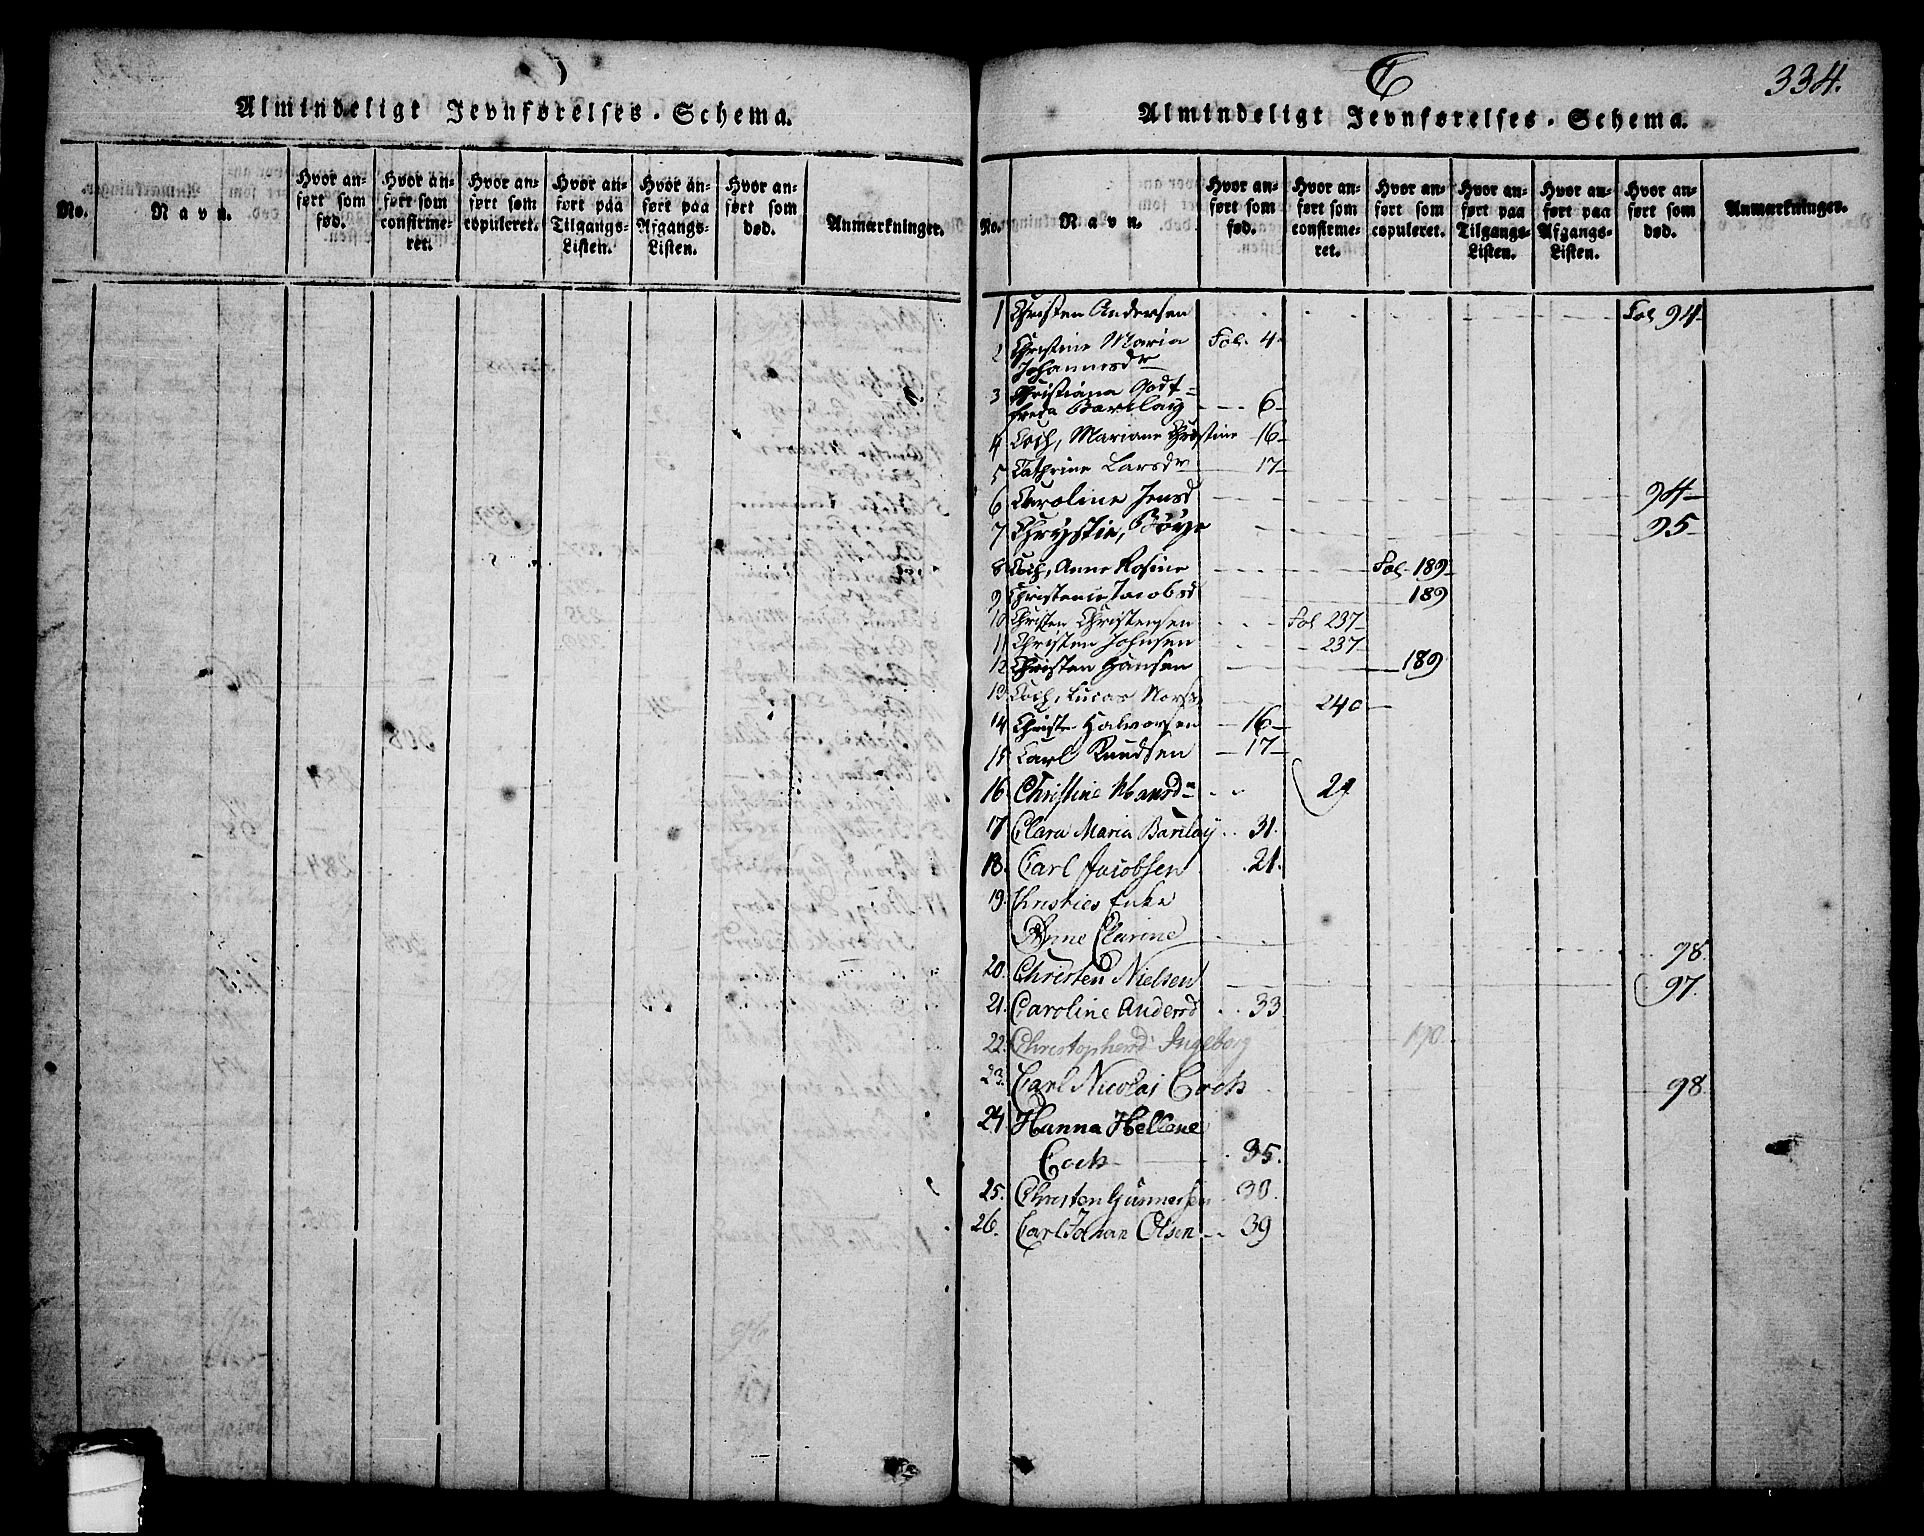 Almindeligt Jevnførelses-Schema.
No.
Navn.
Hvor anført som fød.
Hvor anført som confirmeret.
Hvor anført som copuleret.
Hvor anført paa Tilgangs-Listen.
Hvor anført paa Afgangs-Listen.
Hvor anført som død.
Anmærkninger.
C
334.
Almindeligt Jevnførelses-Schema.
No.
Navn.
Hvor anført som fød.
Hvor anført som confirmeret.
Hvor anført som copuleret.
Hvor anført paa Tilgangs-Listen.
Hvor anført paa Afgangs-Listen.
Hvor anført som død.
Anmærkninger.
1 Christen Andersen Fol 94
2 Christine Maria Fol. 4
Johannesdr
3 Christiana Godt=
freda Barclay 6
4 Coch, Mariane Christine 16
5 Cathrine Larsdr 17
6 Caroline Jensd 94
7 Chrystie, Börge 95
8 Coch, Anne Rosine Fol. 189
9 Christence Jacobsd 189
10 Christen Christensen Fol 237
11 Christen Johnsen 237
12 Christen Hansen 189
13 Coch, Lucas 240
14 Christen Halvorsen 16
15 Carl Knudsen 17
16 Christine 29
17 Clara Maria Barclay 31.
18. Carl Jacobsen 21.
19. Christies Enke
Anne Clarine 98.
20. Christen Nielsen 97.
21. Caroline Andersd 33
22. Christophersd Ingeborg 190
23. Carl Nicolai Coch 98
24 Hanna Hellene
Coch 35.
25. Christen Gunnersen 30.
26. Carl Johan Olsen 39